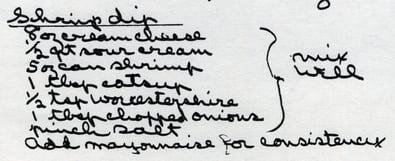 Shrimp dip
8 oz cream cheese
1/2 pt sour cream
5 oz can shrimp
1 tbsp catsup
1/2 tsp worcestershire
1 tbsp chopped onions
pinch salt
mix
well
add mayonnaise for consistency